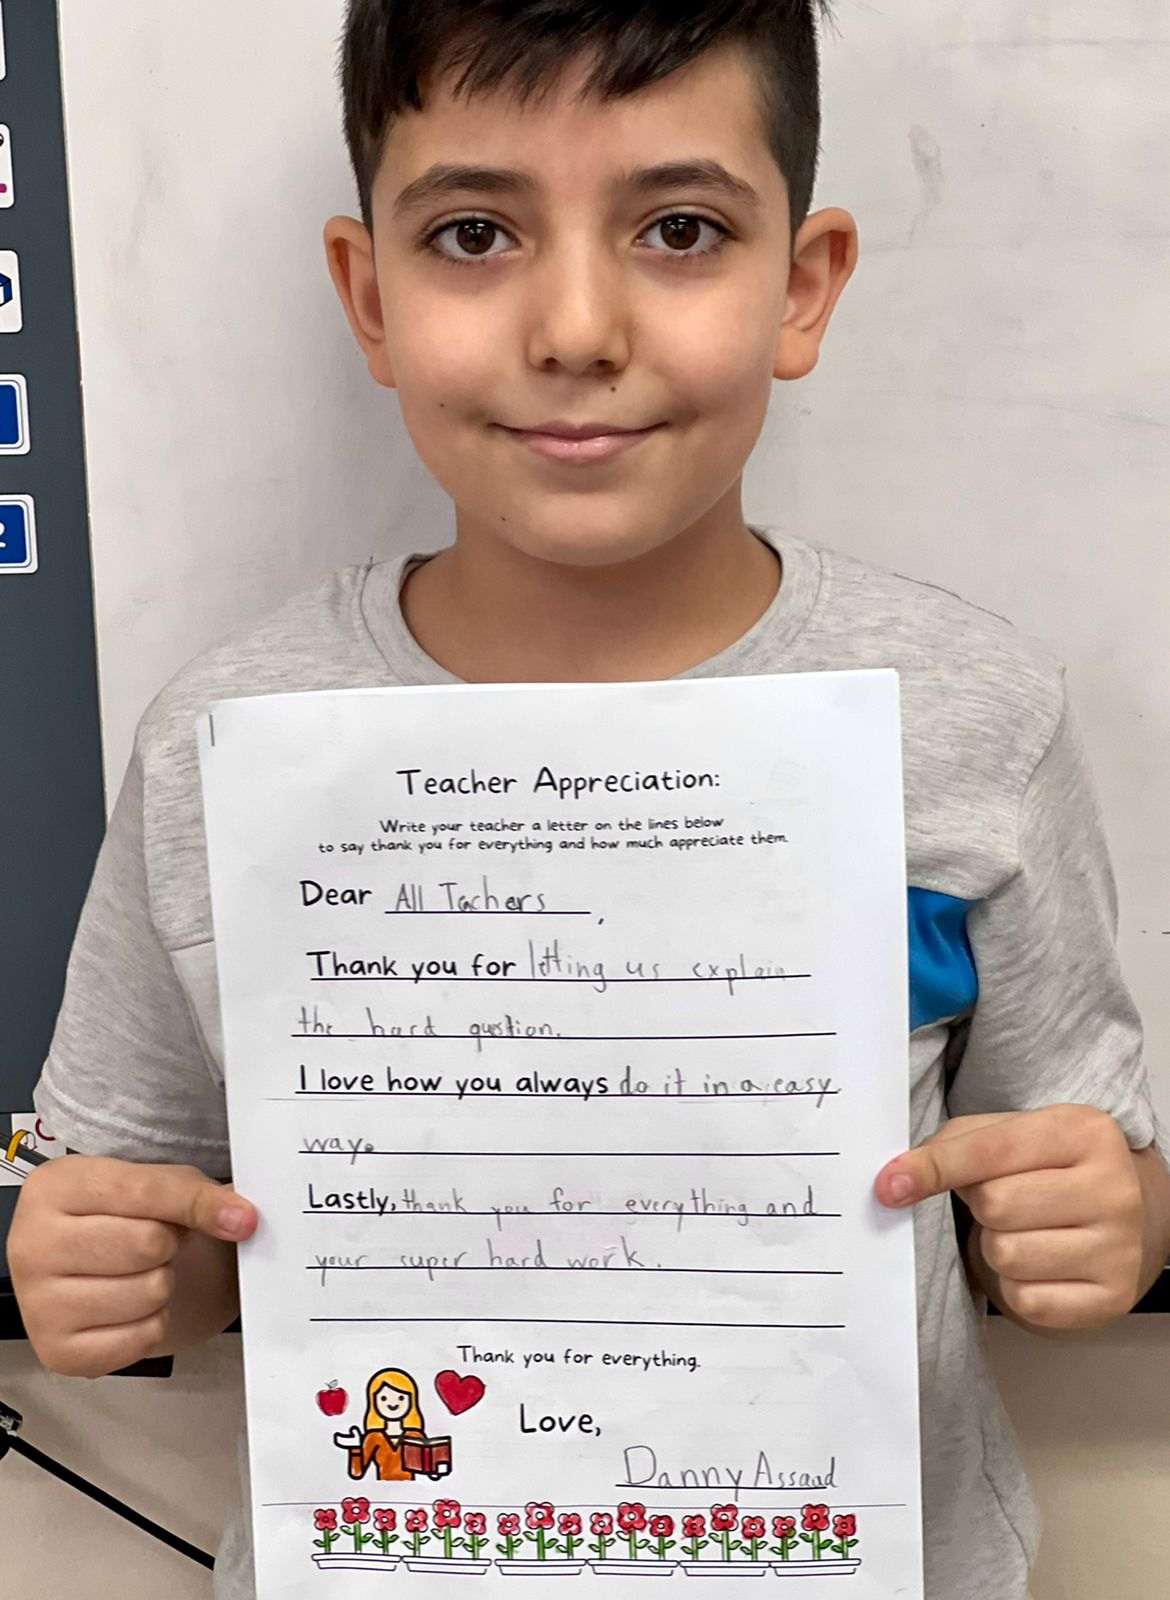 Teacher Appreciation:
Write your teacher a letter on the lines below
to say thank you for everything and how much appreciate them.
Dear All Tachers,
Thank you for letting us explain
the hard question.
I love how you always do it in a easy
way.
Lastly, thank you for everything and
your super hard work.
Thank you for everything.
Love,
Danny Assaad